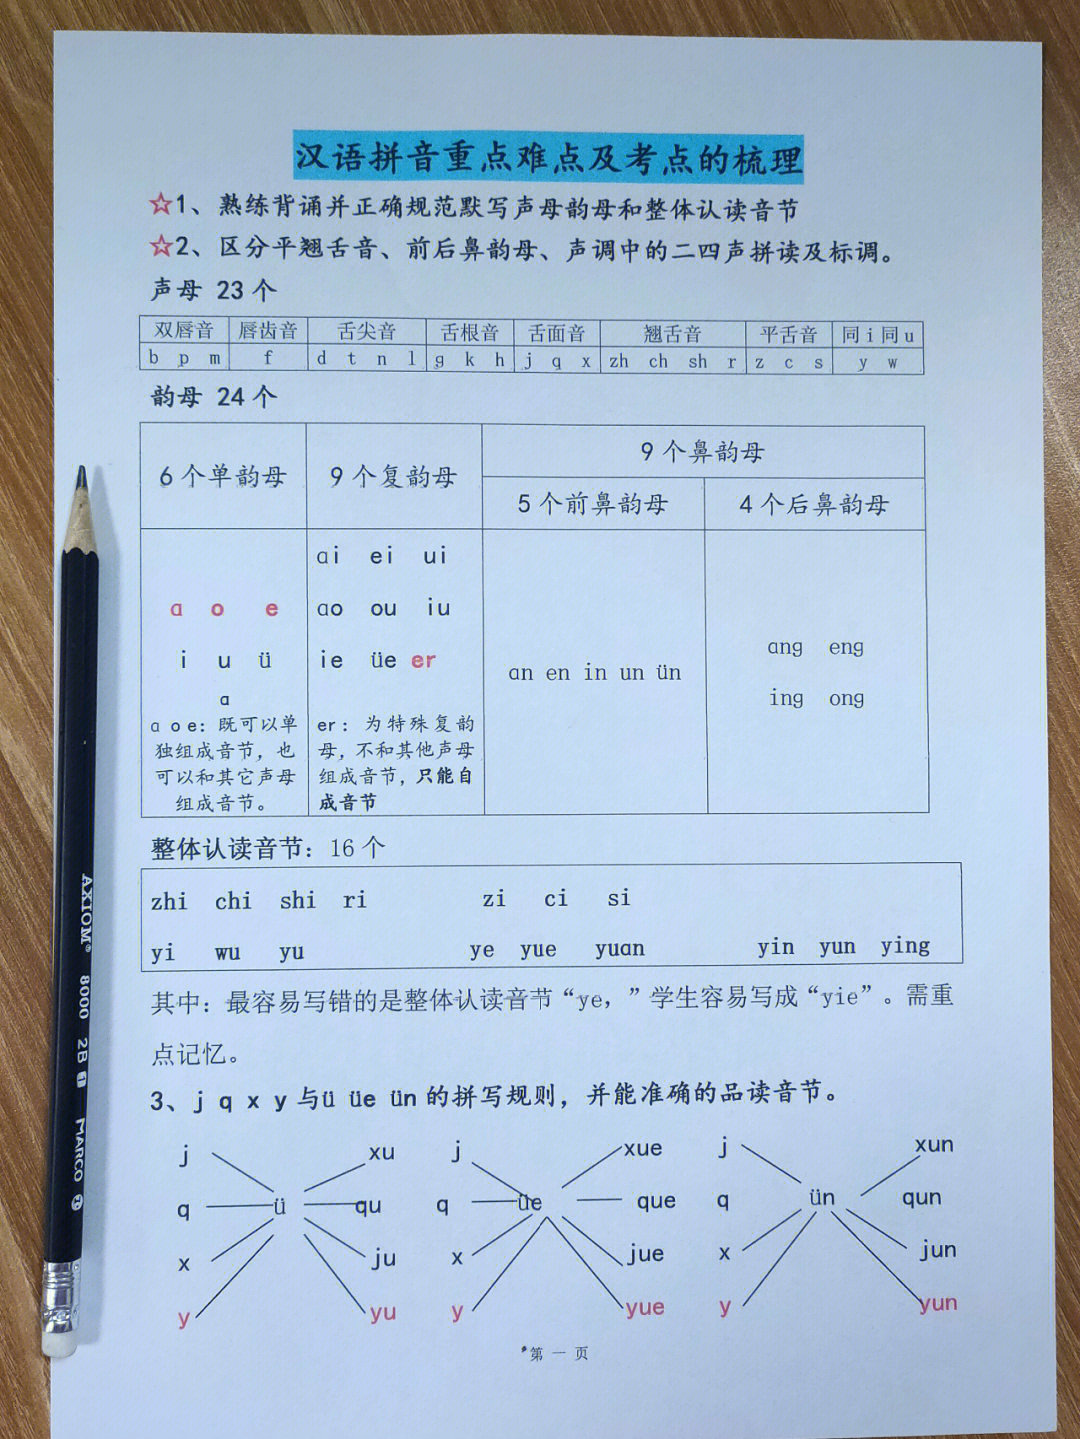 汉语拼音重点难点及考点的梳理
☆1、熟练背诵并正确规范默写声母韵母和整体认读音节
☆2、区分平翘舌音、前后鼻韵母、声调中的二四声拼读及标调。
声母 23 个
双唇音 唇齿音 舌尖音 舌根音 舌面音 翘舌音 平舌音 同 i 同 u
b p m f d t n l g k h j q x zh ch sh r z c s y w
韵母 24 个
6 个单韵母 9 个复韵母 9 个鼻韵母
5 个前鼻韵母 4 个后鼻韵母
ɑ o e
i u ü
ɑ
ɑ o e：既可以单
独组成音节，也
可以和其它声母
组成音节。
ɑi ei ui
ɑo ou iu
ie üe er
er：为特殊复韵
母，不和其他声母
组成音节，只能自
成音节
ɑn en in un ün
ɑng eng
ing ong
整体认读音节：16 个
zhi chi shi ri zi ci si
yi wu yu ye yue yuɑn yin yun ying
其中：最容易写错的是整体认读音节“ye，”学生容易写成“yie”。需重
点记忆。
3、j q x y 与ü üe ün 的拼写规则，并能准确的品读音节。
j xu j xue j xun
q ü qu q üe que q ün qun
x ju x jue x jun
y yu y yue y yun
第 一 页
AXIOM® 8000 2B MARCO